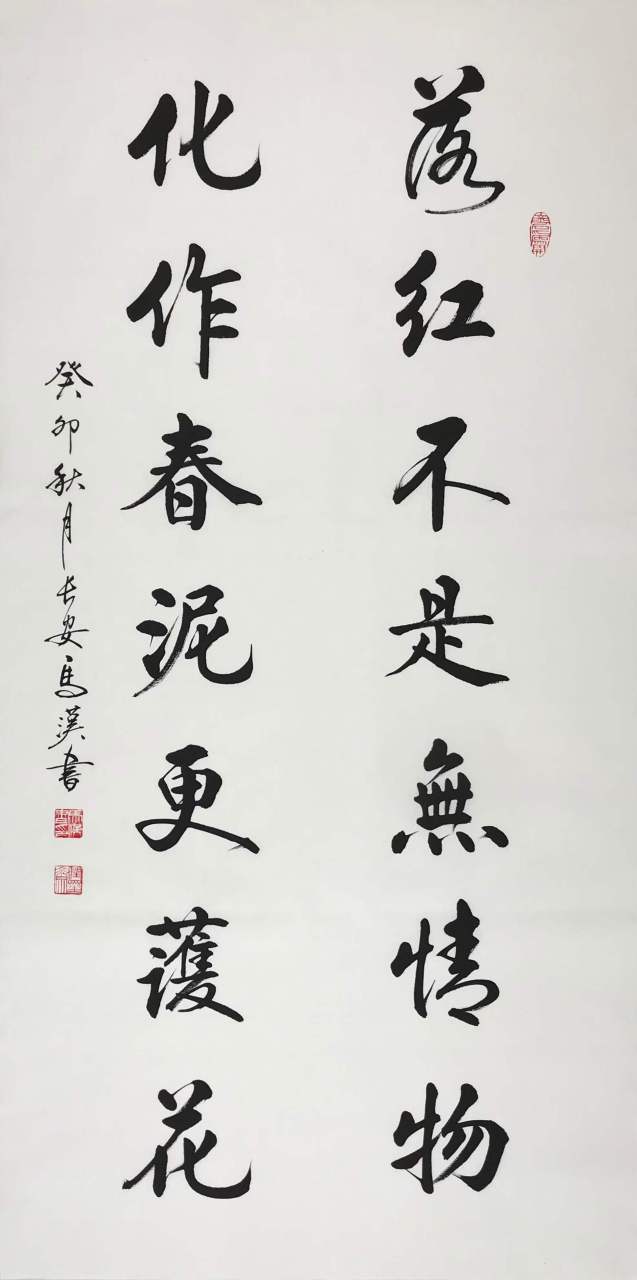 落红不是無情物
化作春泥更護花
癸卯秋月长安馬漢書